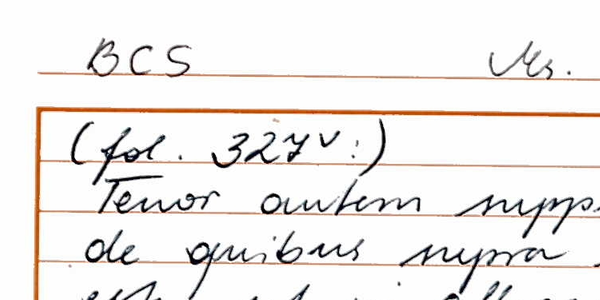 BCS Ms.
(fol. 327v:)
Tenor autem supp
de quibus supra